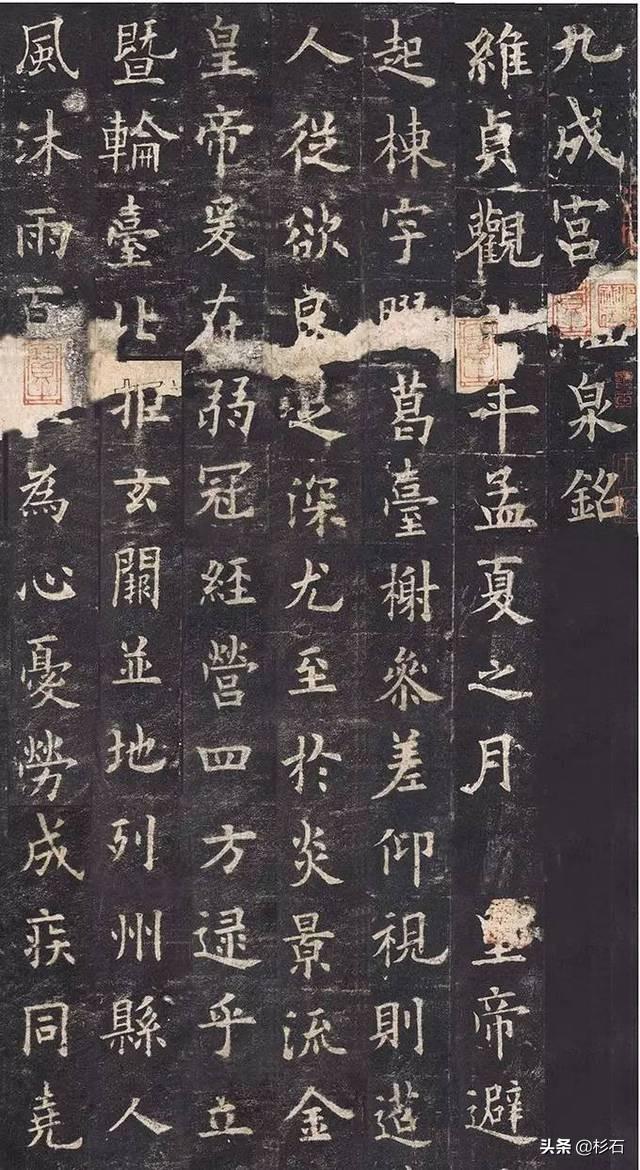 九成宮泉銘
維貞觀年孟夏之月 皇帝避
起棟宇葛臺榭參差仰視則迢
人從欲良足深尤至於炎景流金
皇帝爰在弱冠經營四方逮乎立
暨輪臺北拒玄闕並地列州縣人
風沐雨百為心憂勞成疾同堯
头条 @杉石